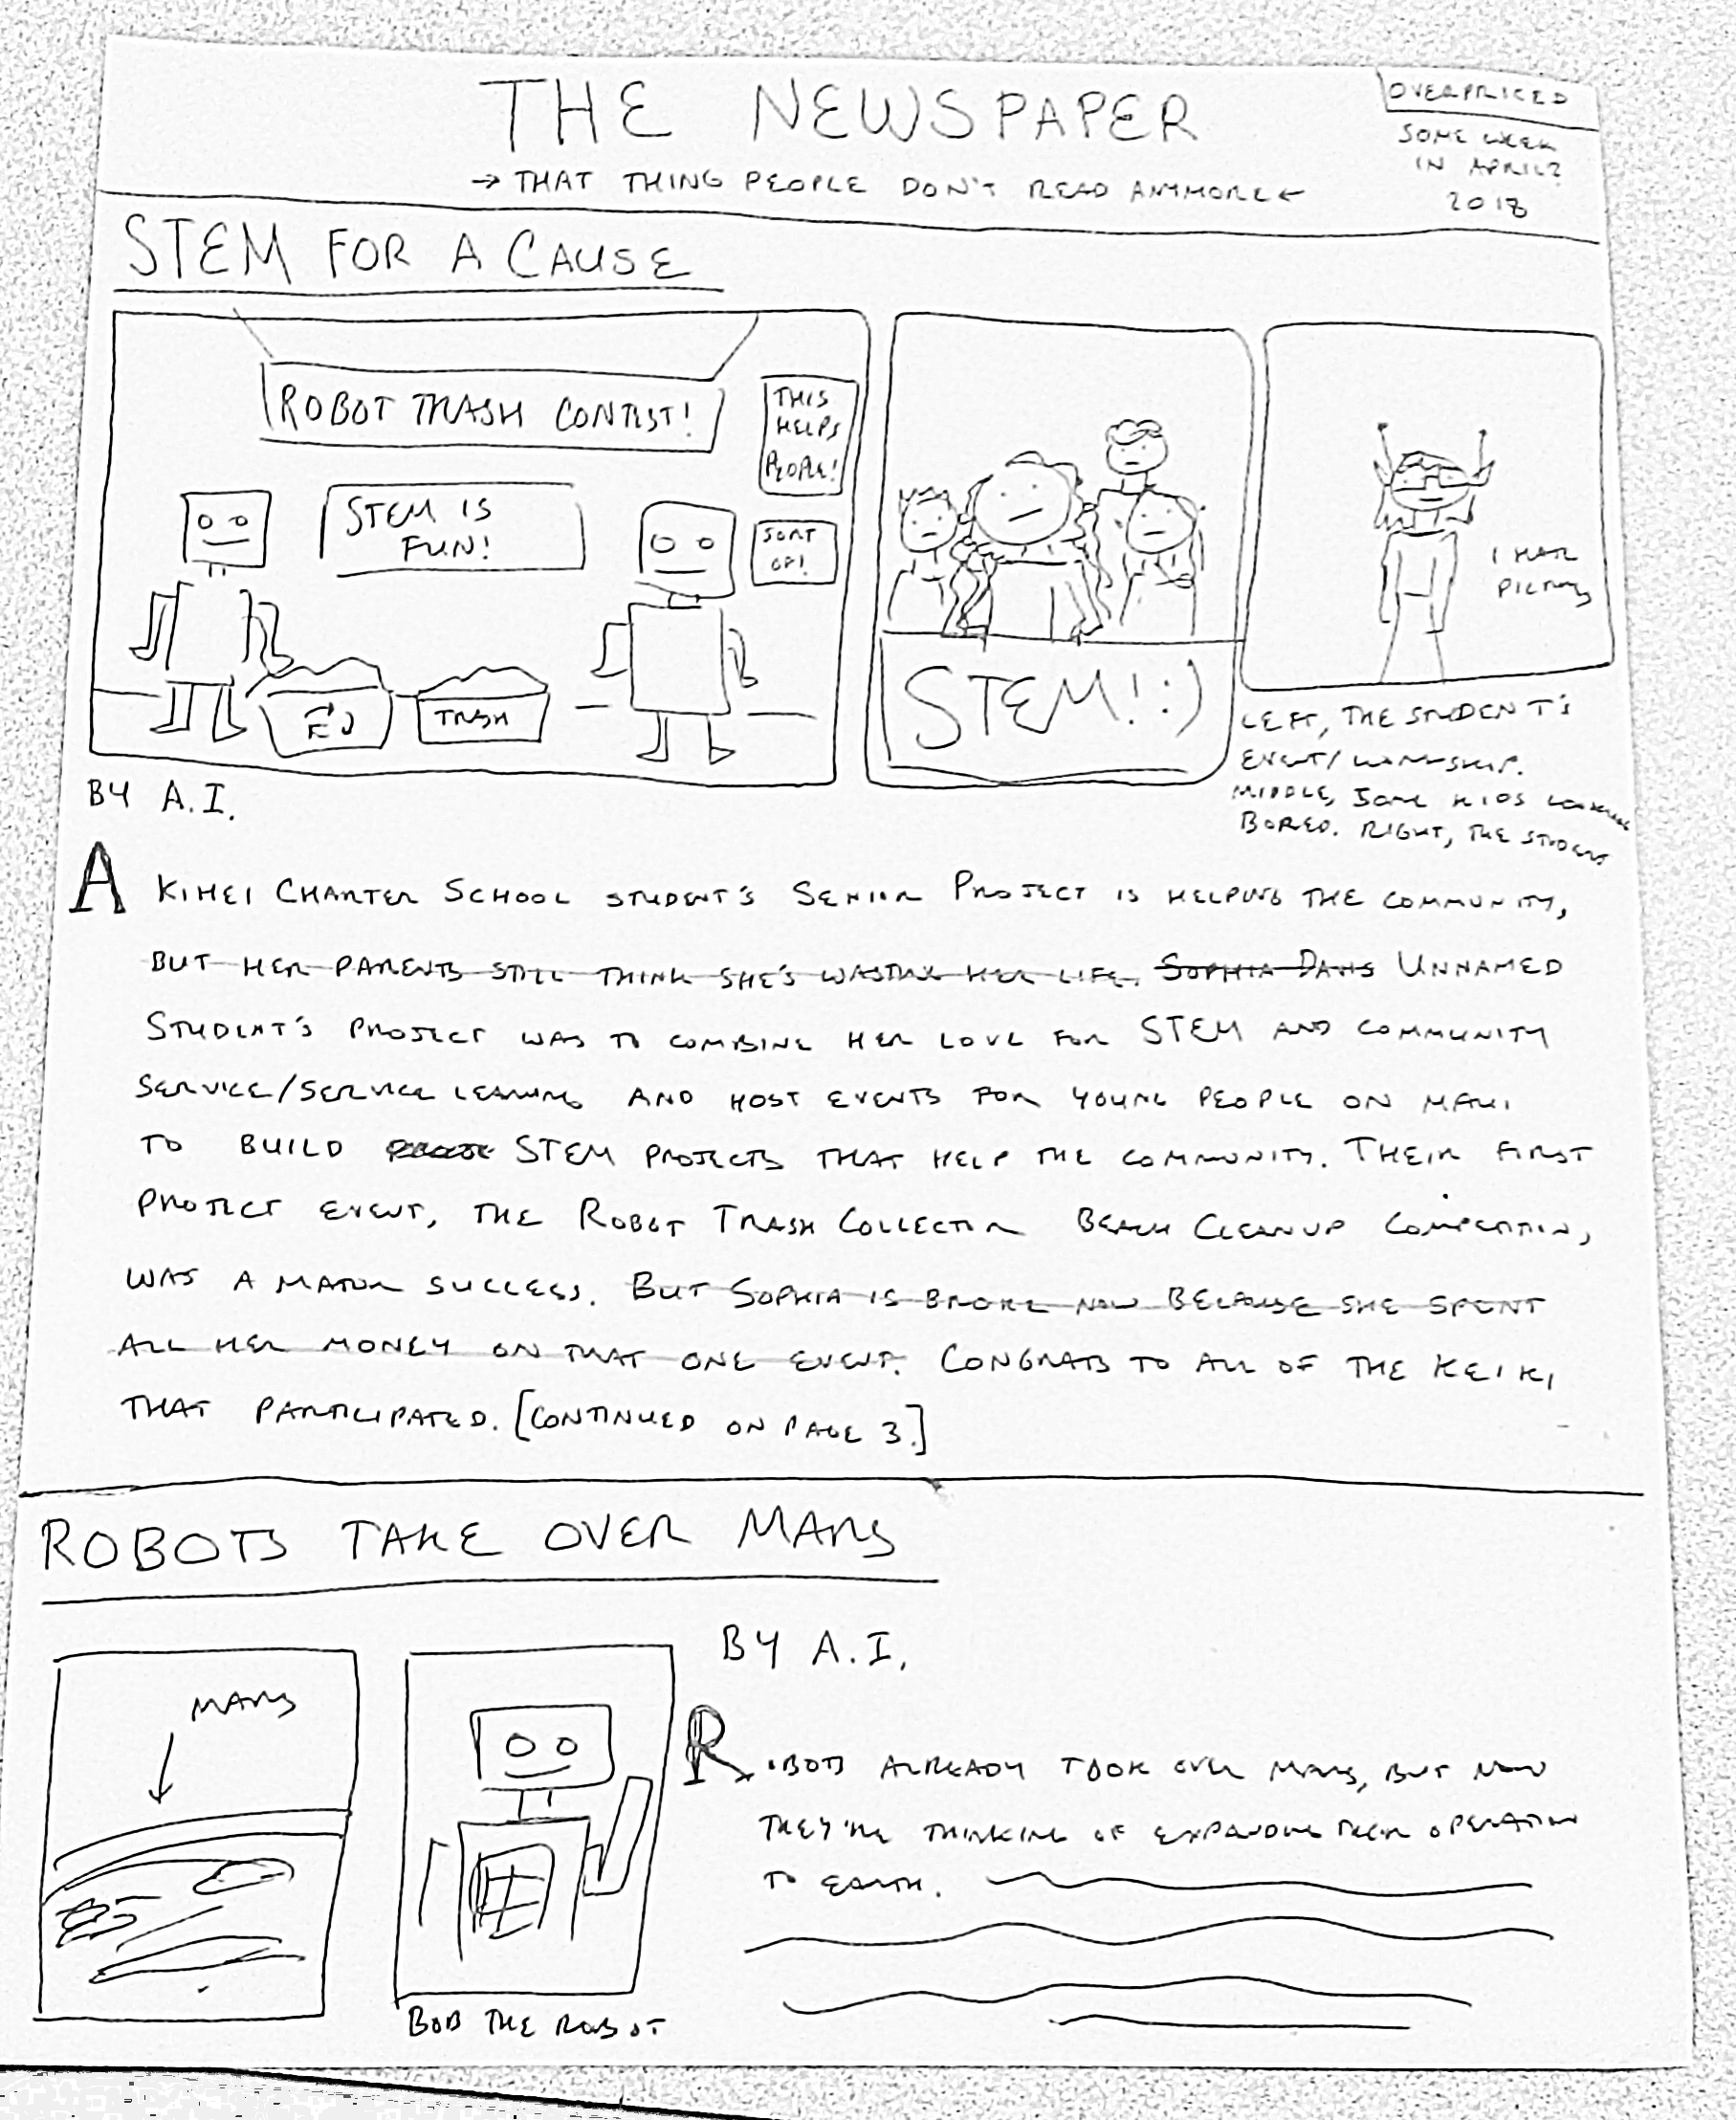 THE NEWSPAPER
→ THAT THING PEOPLE DON'T READ ANYMORE ←
OVERPRICED
SOME WEEK
IN APRIL?
2018
STEM FOR A CAUSE
ROBOT TRASH CONTEST!
THIS
HELPS
PEOPLE!
STEM IS
FUN!
SORT
OF!
TRASH
STEM! :)
I HATE
PICTURES
LEFT, THE STUDENT'S
EVENT/WORKSHIP.
MIDDLE, SOME KIDS LOOKING
BORED. RIGHT, THE STUDENT
BY A.I.
A KIHEI CHARTER SCHOOL STUDENT'S SENIOR PROJECT IS HELPING THE COMMUNITY,
BUT HER PARENTS STILL THINK SHE'S WASTING HER LIFE. SOPHIA DAVIS UNNAMED
STUDENT'S PROJECT WAS TO COMBINE HER LOVE FOR STEM AND COMMUNITY
SERVICE/SERVICE LEARNING AND HOST EVENTS FOR YOUNG PEOPLE ON MAUI
TO BUILD STEM PROJECTS THAT HELP THE COMMUNITY. THEIR FIRST
PROJECT EVENT, THE ROBOT TRASH COLLECTOR BEACH CLEANUP COMPETITION,
WAS A MAJOR SUCCESS. BUT SOPHIA IS BROKE NOW BECAUSE SHE SPENT
ALL HER MONEY ON THAT ONE EVENT. CONGRATS TO ALL OF THE KEIKI
THAT PARTICIPATED. [CONTINUED ON PAGE 3.]
ROBOTS TAKE OVER MARS
BY A.I.
MARS
ROBOTS ALREADY TOOK OVER MARS, BUT NOW
THEY'RE THINKING OF EXPANDING THEIR OPERATION
TO EARTH.
BOB THE ROBOT